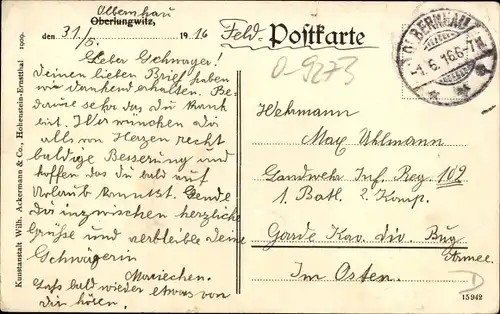 Olbernhau
Oberlungwitz,
den 31/5. 1916
Feld-Postkarte
OLBERNHAU
-1.6.16.6-7N.
0-9273
Lieber Schwager!
Deinen lieben Brief haben
wir dankend erhalten. Be-
daure sehr das du krank
bist. Wir wünschen dir
alls von Herzen recht
baldige Besserung und
hoffen das du bald auf
Urlaub kannst. Sende
dir inzwischen herzliche
Grüße und verbleibe deine
Schwägerin
Mariechen.
Laß bald wieder etwas von
dir hören.
Wehrmann
Max Uhlmann
Landwehr Inf. Reg. 102
1. Batl. 2. Komp.
Garde Kav. Div. Bug
Armee.
Im Osten.
D
15942
Kunstanstalt Wilh. Ackermann & Co., Hohenstein-Ernstthal 1909.